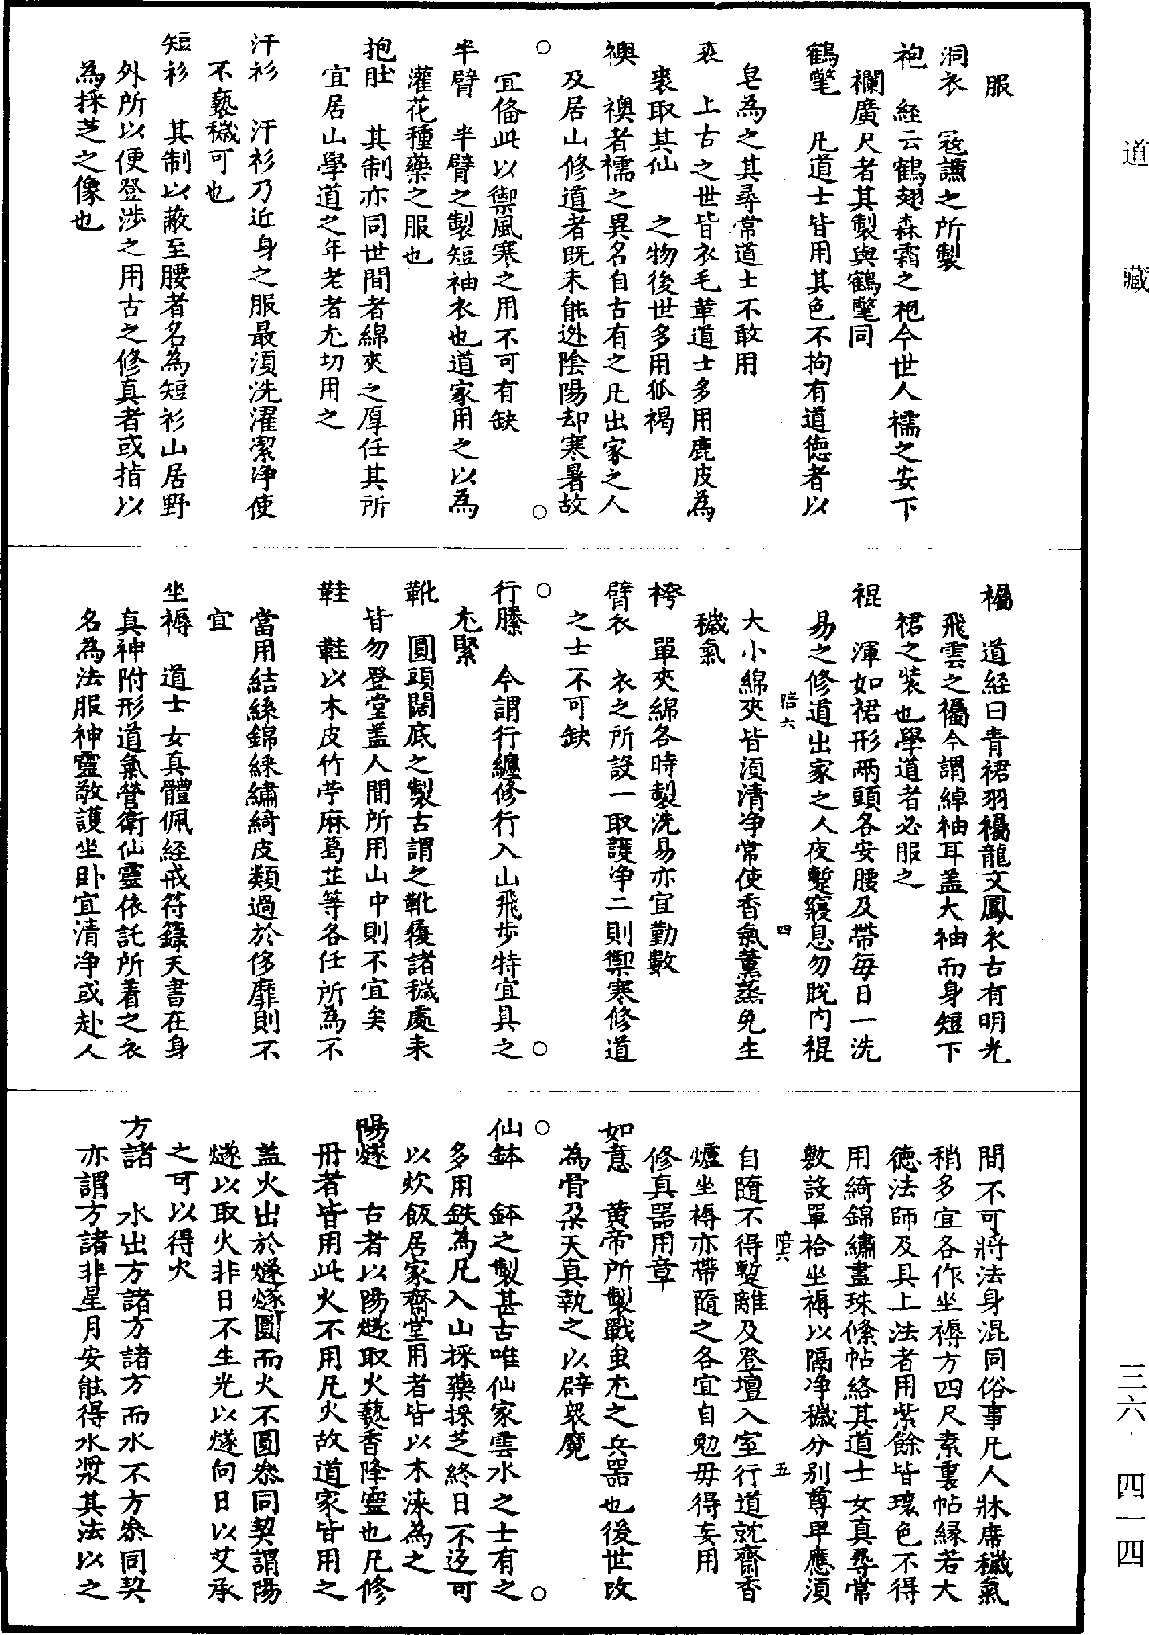 服
洞衣　寇謙之所製
袍　経云鶴翅森霜之袍今世人襦之安下
襴廣尺者其製與鶴氅同
鶴氅　凡道士皆用其色不拘有道德者以
皂為之其尋常道士不敢用
裘　上古之世皆衣毛革道士多用鹿皮為
裘取其仙　之物後世多用狐褐
襖　襖者襦之異名自古有之凡出家之人
及居山修道者既未能逃陰陽却寒暑故
○　○
宜偹此以禦風寒之用不可有缺
半臂　半臂之製短袖衣也道家用之以為
灌花種藥之服也
抱肚　其制亦同世間者綿夾之厚任其所
宜居山學道之年老者尤切用之
汗衫　汗衫乃近身之服最湏洗濯潔净使
不褻穢可也
短衫　其制以蔽至腰者名為短衫山居野
外所以便登渉之用古之修真者或指以
為採芝之像也
襡　道経曰青裙羽襡龍文鳳衣古有明光
飛雲之襡今謂綽袖耳盖大袖而身短下
裙之裝也學道者必服之
裩　渾如裙形兩頭各安腰及帶每日一洗
易之修道出家之人夜蹔寢息勿脫内裩
陪六　四
大小綿夾皆湏清净常使香氣薰蒸免生
穢氣
袴　單夾綿各時製洗易亦宜勤數
臂衣　衣之所設一取護净二則禦寒修道
之士不可缺
○　○
行縢　今謂行纏修行入山飛步特宜具之
尤緊
靴　圓頭闊底之製古謂之靴履諸穢處来
皆勿登堂盖人間所用山中則不宜矣
鞋　鞋以木皮竹苧麻葛芷等各任所為不
當用結絲錦綵繡綺皮類過於侈靡則不
宜
坐褥　道士女真體佩経戒符籙天書在身
真神附形道氣營衛仙靈依託所着之衣
名為法服神靈敬護坐卧宜清净或赴人
間不可將法身混同俗事凡人牀席穢氣
稍多宜各作坐褥方四尺素裏帖緣若大
德法師及具上法者用紫餘皆壞色不得
用綺錦繡畫珠絛帖絡其道士女真尋常
敷設單祫坐褥以隔净穢分别尊卑應湏
陪六　五
自隨不得蹔離及登壇入室行道就齋香
爐坐褥亦帶隨之各宜自勉毋得妄用
修真器用章
如意　黄帝所製戰蚩尤之兵器也後世改
為骨朶天真執之以辟衆魔
○　○
仙鉢　鉢之製甚古唯仙家雲水之士有之
多用鉄為凡入山採藥採芝終日不返可
以炊飯居家齋堂用者皆以木涞為之
陽燧　古者以陽燧取火爇香降靈也凡修
丹者皆用此火不用凡火故道家皆用之
盖火出於燧燧圓而火不圓叅同契謂陽
燧以取火非日不生光以燧向日以艾承
之可以得火
方諸　水出方諸方諸方而水不方叅同契
亦謂方諸非星月安能得水漿其法以之
道　藏　三六　四一四